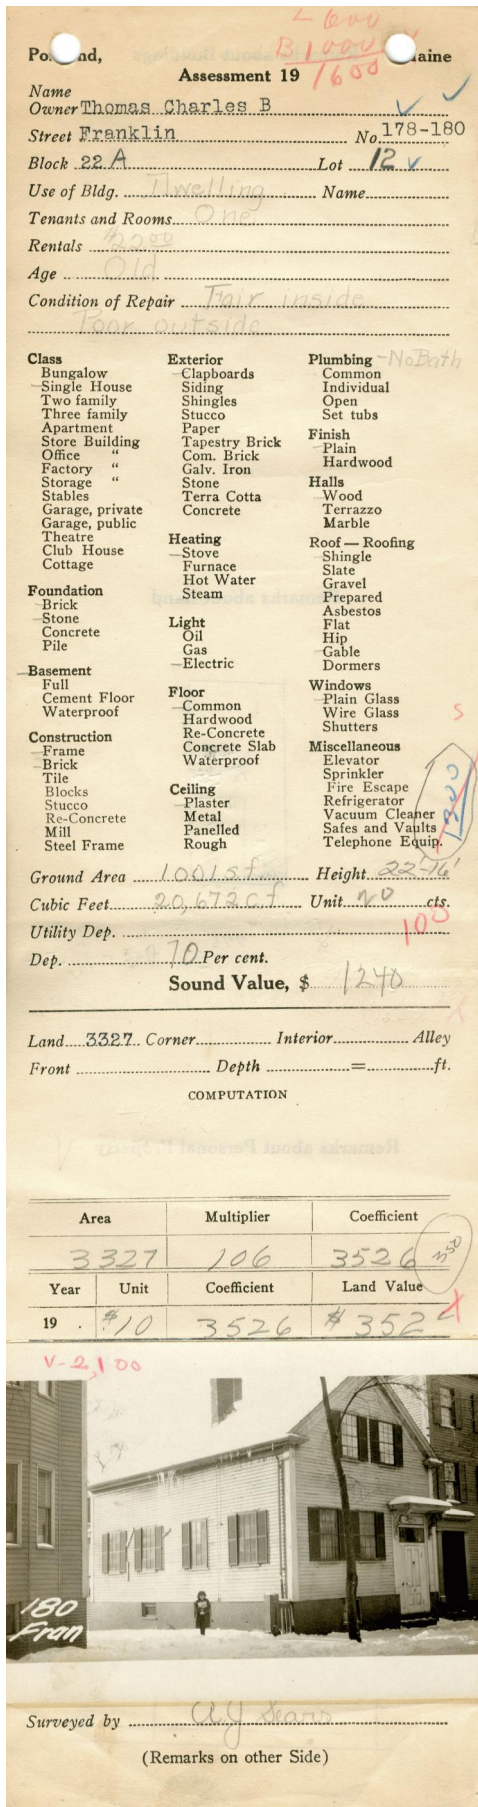 L 600
B 1000
1600
Assessment 19
Name
Owner Thomas Charles B
Street Franklin No. 178-180
Block 22 A Lot 12
Use of Bldg. Dwelling Name
Tenants and Rooms One
Rentals $22.00
Age Old
Condition of Repair Fair inside
Poor outside
Class
Bungalow
Single House
Two family
Three family
Apartment
Store Building
Office "
Factory "
Storage "
Stables
Garage, private
Garage, public
Theatre
Club House
Cottage
Foundation
Brick
Stone
Concrete
Pile
Basement
Full
Cement Floor
Waterproof
Construction
Frame
Brick
Tile
Blocks
Stucco
Re-Concrete
Mill
Steel Frame
Exterior
Clapboards
Siding
Shingles
Stucco
Paper
Tapestry Brick
Com. Brick
Galv. Iron
Stone
Terra Cotta
Concrete
Heating
Stove
Furnace
Hot Water
Steam
Light
Oil
Gas
Electric
Floor
Common
Hardwood
Re-Concrete
Concrete Slab
Waterproof
Ceiling
Plaster
Metal
Panelled
Rough
Plumbing - No Bath
Common
Individual
Open
Set tubs
Finish
Plain
Hardwood
Halls
Wood
Terrazzo
Marble
Roof — Roofing
Shingle
Slate
Gravel
Prepared
Asbestos
Flat
Hip
Gable
Dormers
Windows
Plain Glass
Wire Glass
Shutters
Miscellaneous
Elevator
Sprinkler
Fire Escape
Refrigerator
Vacuum Cleaner
Safes and Vaults
Telephone Equip.
1300
Ground Area 1001 s.f. Height 22'-16'
Cubic Feet 20,672 c.f. Unit 20 cts.
Utility Dep. 100
Dep. 70 Per cent.
Sound Value, $ 1240
Land 3327 Corner Interior Alley
Front Depth = ft.
COMPUTATION
Area Multiplier Coefficient
3327 106 3526 350
Year Unit Coefficient Land Value
19 . $10 3526 $352
V-2,100
180
Fran
Surveyed by A J Sears
(Remarks on other Side)